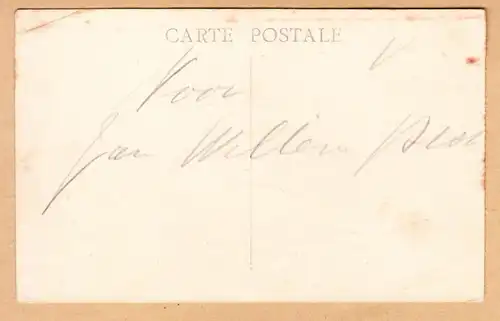 CARTE POSTALE
Voor
Jan Willem